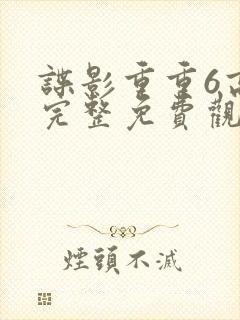 諜影重重6高
完整免費觀
煙頭不滅